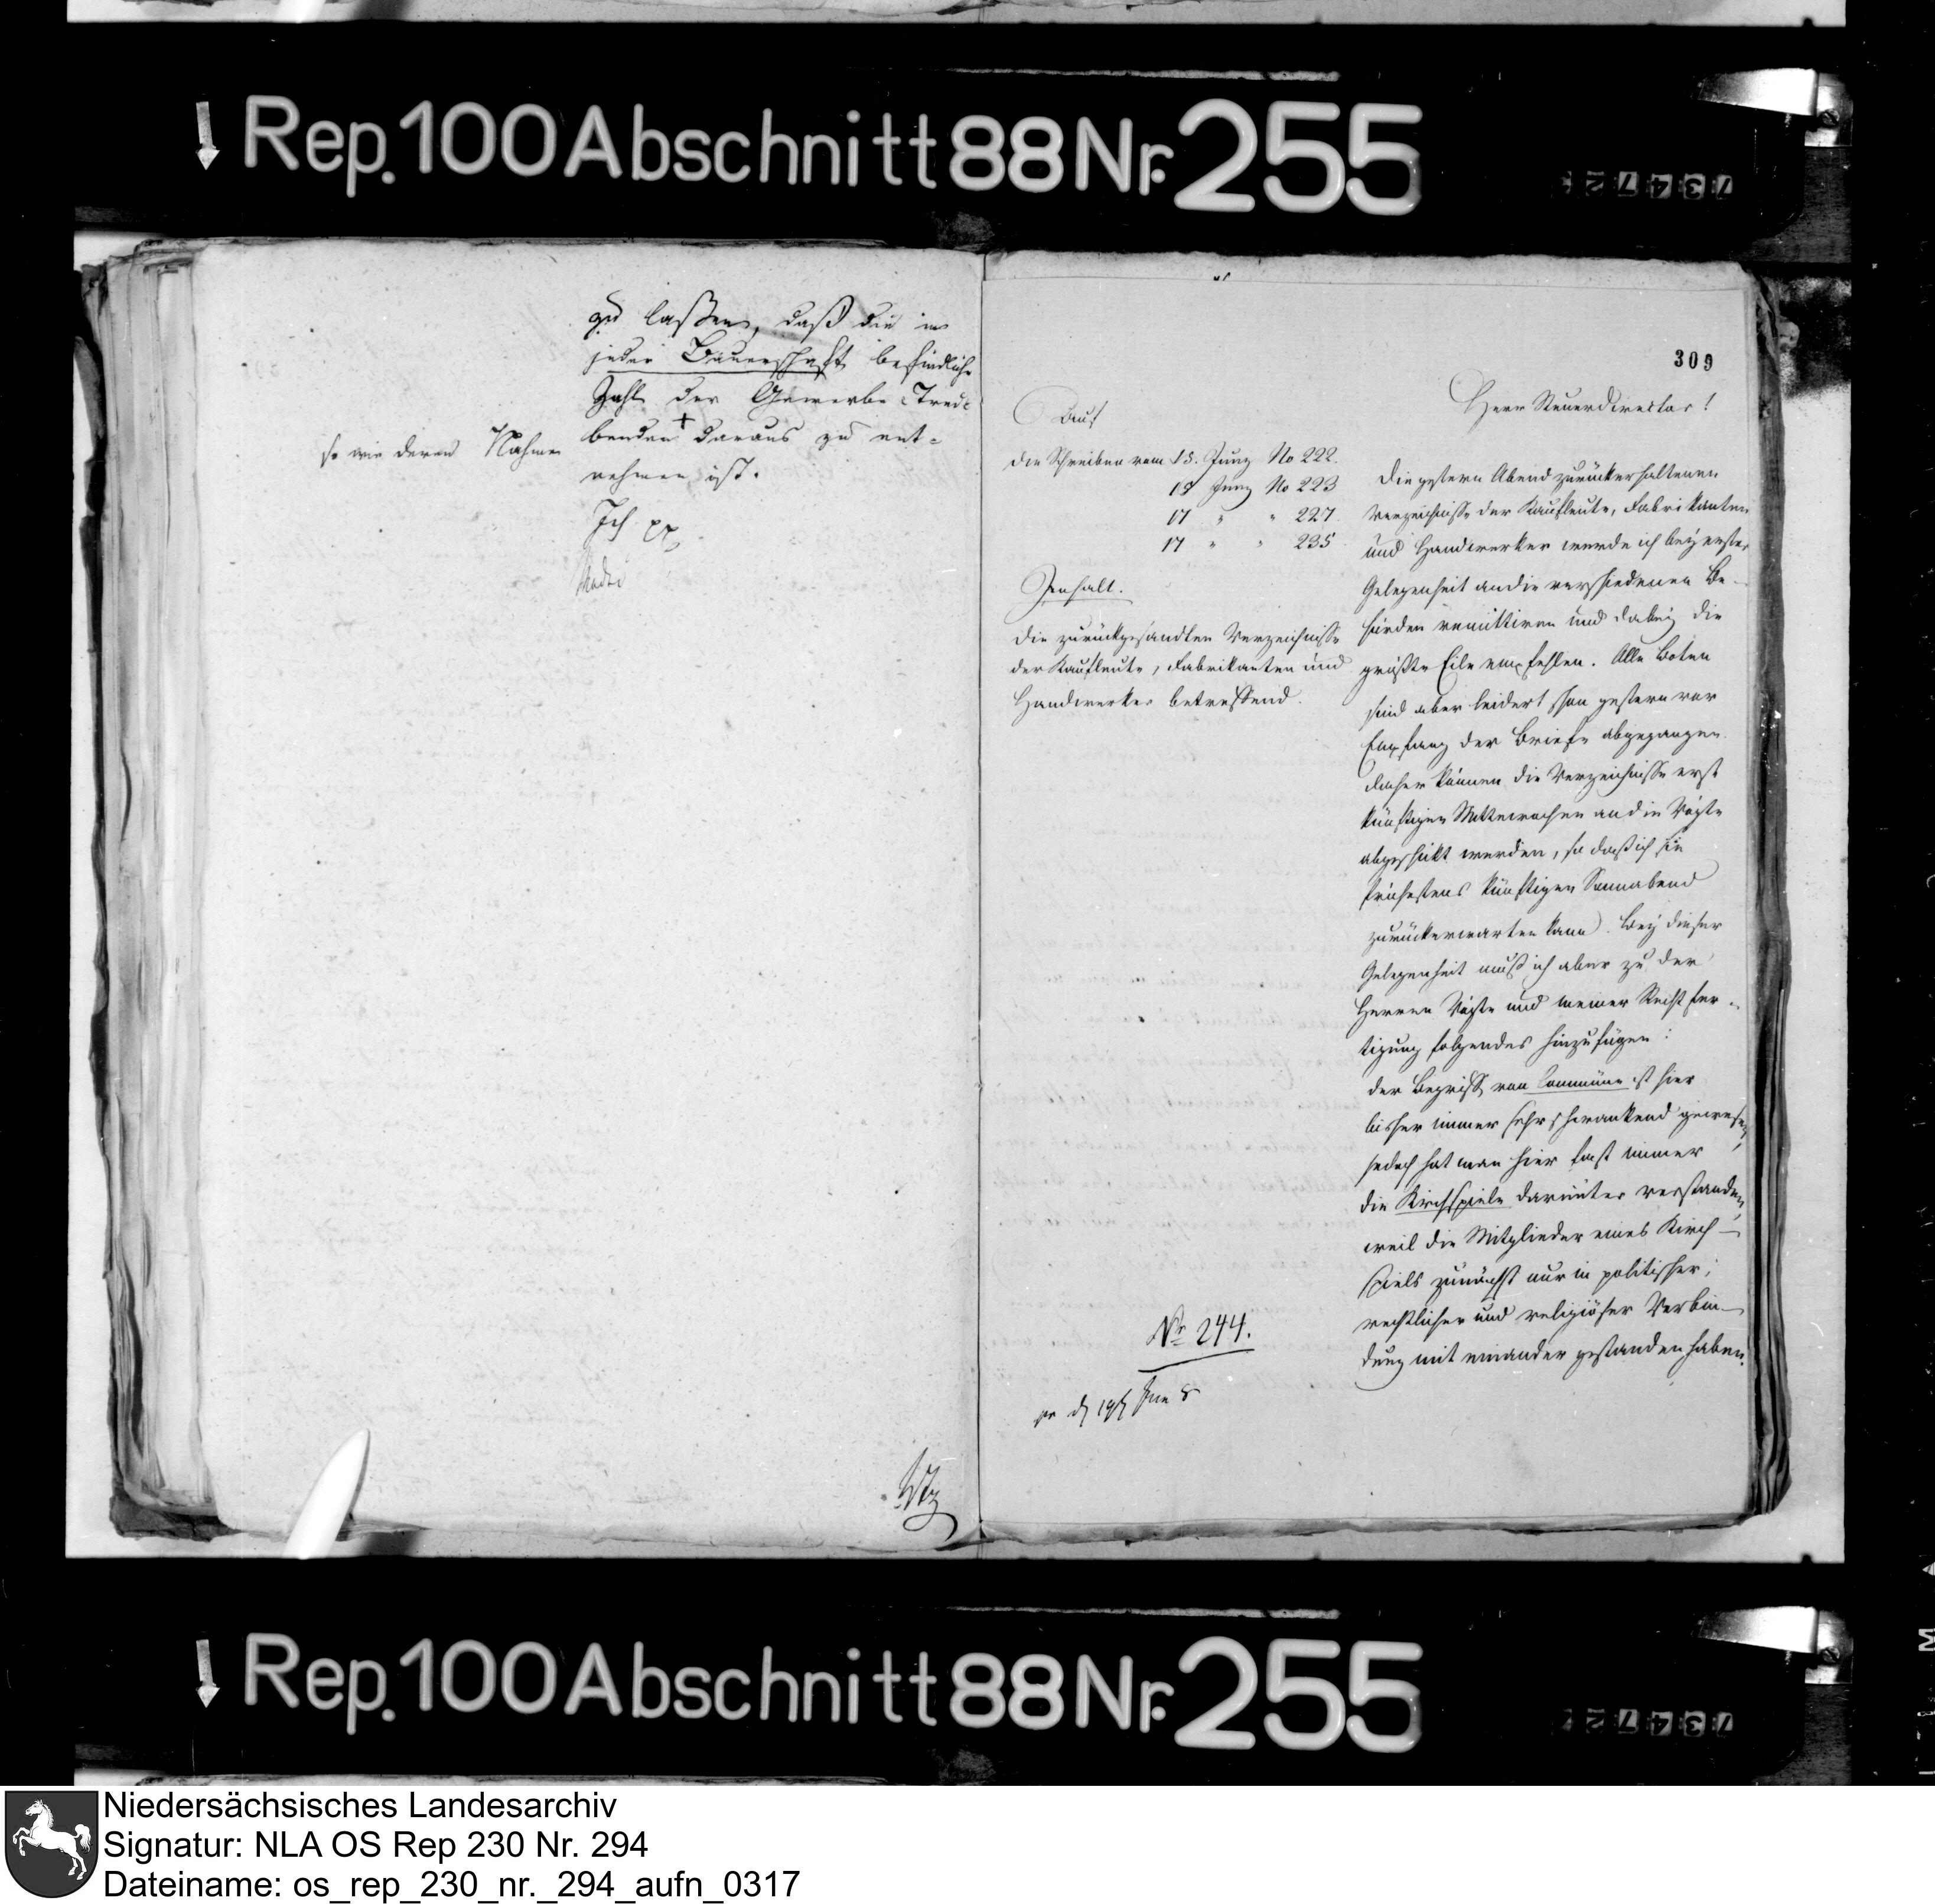 Rep. 100 Abschnitt 88 Nr. 255
zu laßen, daß die in
jeder Bauerschaft befindliche
Zahl der Gewerbe-Trei-
benden + daraus zu ent-
nehmen ist.
so wie deren Nahmen
Ich
309
Herr Steuerdirector!
Auf
die Schreiben vom 15. Juny No 222.
15 Juny No 223
17 " " 227.
17 " " 235.
Innhalt.
die zurückgesandten Verzeichnisse
der Kaufleute, Fabrikanten und
Handwerker betreffend.
No 244.
die gestern Abend zurückerhaltenen
Verzeichnisse der Kaufleute, Fabrikanten
und Handwerker werde ich bey erster
Gelegenheit an die verschiedenen Be-
hörden remittiren und dabey die
größte Eile empfehlen. Alle Boten
sind aber leider! schon gestern vor
Empfang der Briefe abgegangen
daher können die Verzeichnisse erst
künftigen Mittewochen an die Vögte
abgeschikt werden, so daß ich sie
frühestens künftigen Sonnabend
zurückerwarten kann. Bey dieser
Gelegenheit muß ich aber zu der
Herren Vögte und meiner Rechtfer-
tigung folgendes hinzufügen:
der Begriff von Commüne ist hier
bisher immer sehr schwankend gewesen,
jedoch hat man hier fast immer
die Kirchspiele darunter verstanden,
weil die Mitglieder eines Kirch-
spiels zunächst nur in politischer,
rechtlicher und religiöser Verbin-
dung mit einander gestanden haben.
Rep. 100 Abschnitt 88 Nr. 255
Niedersächsisches Landesarchiv
Signatur: NLA OS Rep 230 Nr. 294
Dateiname: os_rep_230_nr._294_aufn_0317